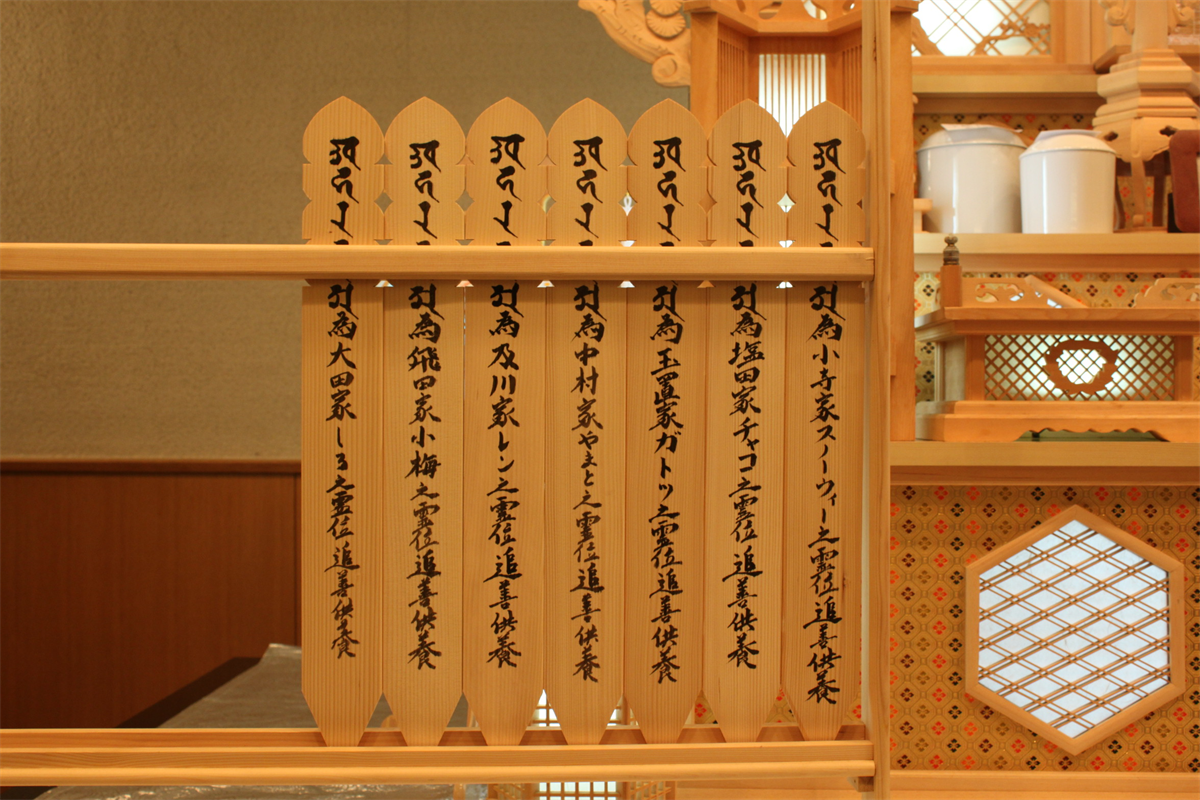 為小寺家スノーウィー之霊位追善供養
為塩田家チャコ之霊位追善供養
為玉置家ガトッ之霊位追善供養
為中村家やまと之霊位追善供養
為及川家レン之霊位追善供養
為飛田家小梅之霊位追善供養
為大田家しる之霊位追善供養